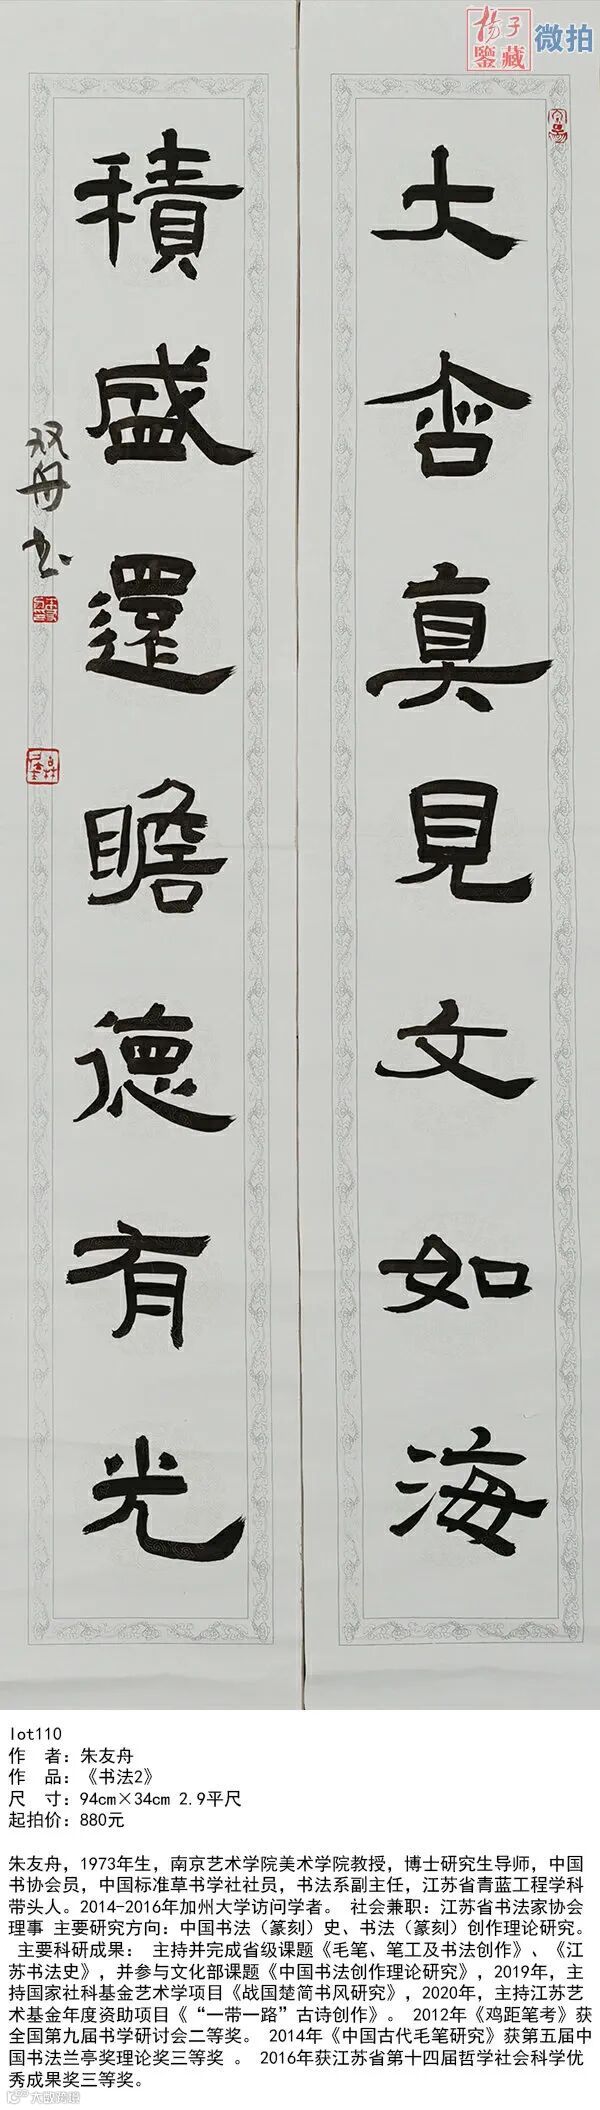 揚子
鑒藏
微拍
大含真見文如海
積盛還瞻德有光
友舟书
lot110
作 者：朱友舟
作 品：《书法2》
尺 寸：94cm×34cm 2.9平尺
起拍价：880元
朱友舟，1973年生，南京艺术学院美术学院教授，博士研究生导师，中国
书协会员，中国标准草书学社社员，书法系副主任，江苏省青蓝工程学科
带头人。2014-2016年加州大学访问学者。 社会兼职：江苏省书法家协会
理事 主要研究方向：中国书法（篆刻）史、书法（篆刻）创作理论研究。
主要科研成果： 主持并完成省级课题《毛笔、笔工及书法创作》、《江
苏书法史》，并参与文化部课题《中国书法创作理论研究》，2019年，主
持国家社科基金艺术学项目《战国楚简书风研究》，2020年，主持江苏艺
术基金年度资助项目《“一带一路”古诗创作》。 2012年《鸡距笔考》获
全国第九届书学研讨会二等奖。 2014年《中国古代毛笔研究》获第五届中
国书法兰亭奖理论奖三等奖 。 2016年获江苏省第十四届哲学社会科学优
秀成果奖三等奖。
大歐跨境